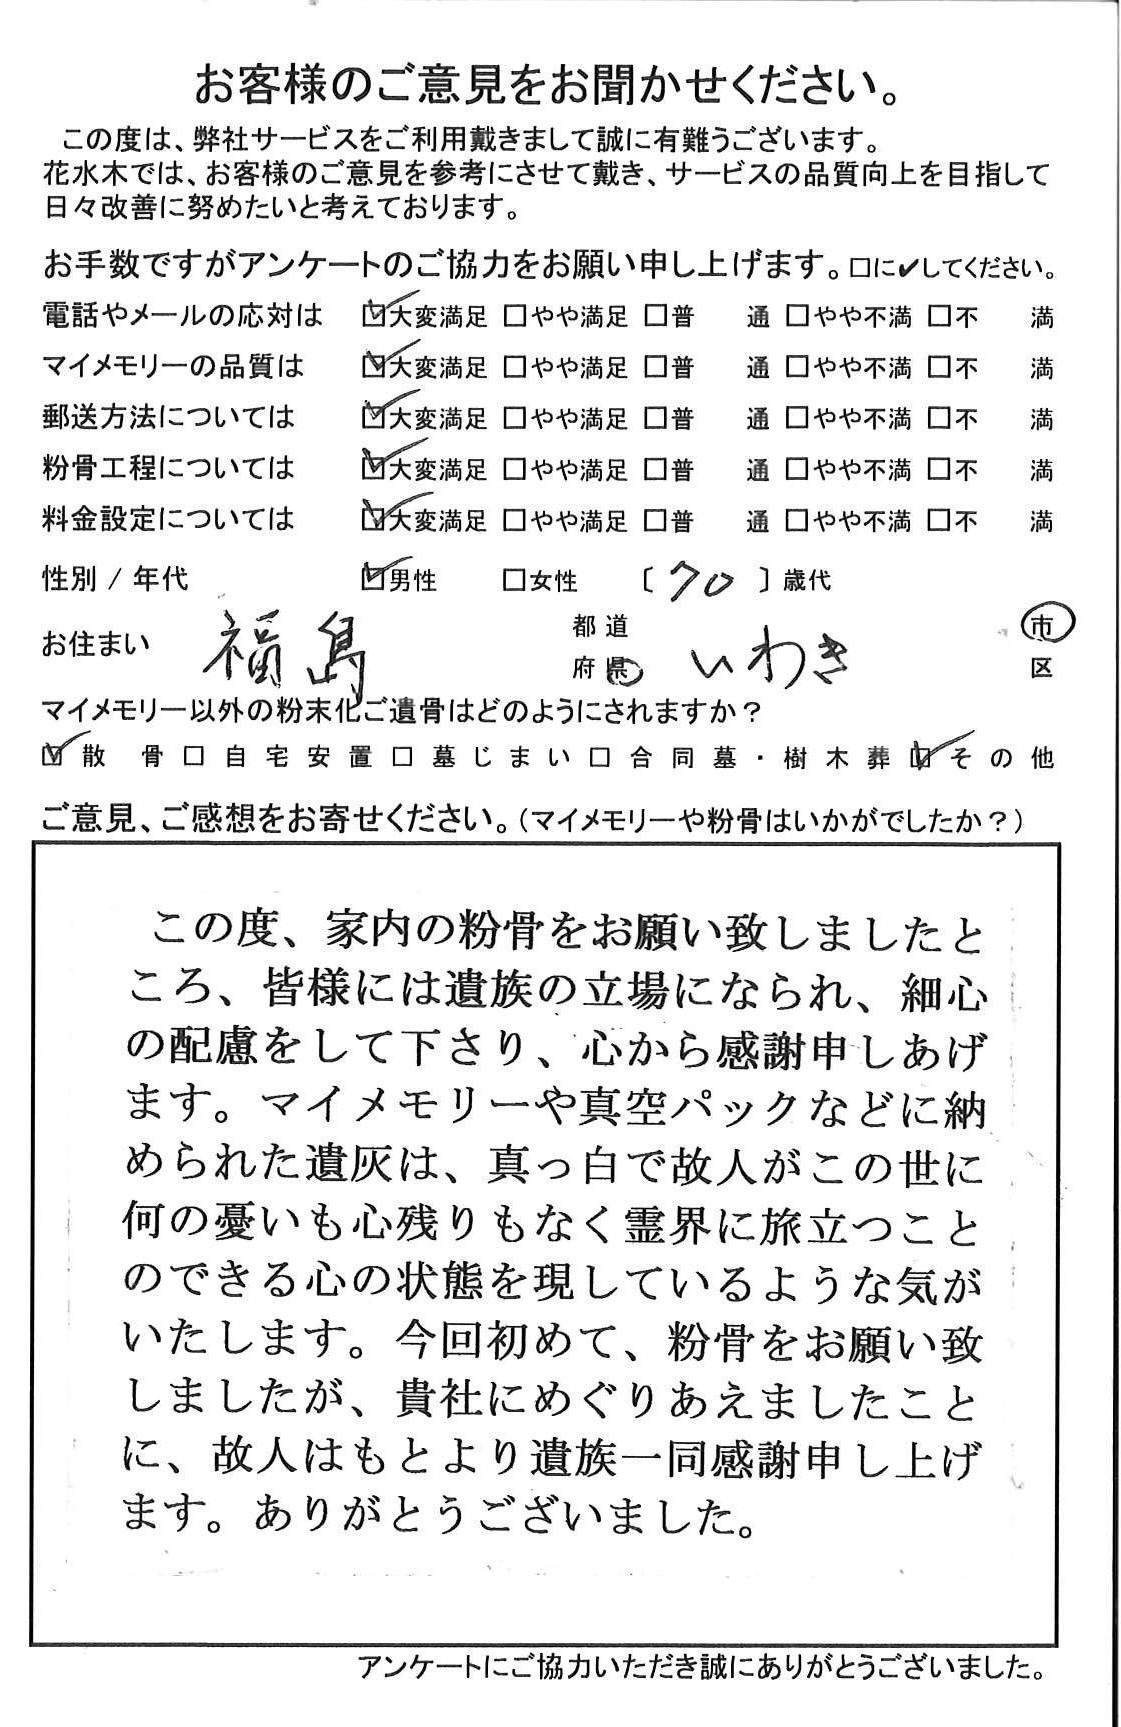 お客様のご意見をお聞かせください。
この度は、弊社サービスをご利用戴きまして誠に有難うございます。
花水木では、お客様のご意見を参考にさせて戴き、サービスの品質向上を目指して
日々改善に努めたいと考えております。
お手数ですがアンケートのご協力をお願い申し上げます。□に✔してください。
電話やメールの応対は ☑大変満足 □やや満足 □普 通 □やや不満 □不 満
マイメモリーの品質は ☑大変満足 □やや満足 □普 通 □やや不満 □不 満
郵送方法については ☑大変満足 □やや満足 □普 通 □やや不満 □不 満
粉骨工程については ☑大変満足 □やや満足 □普 通 □やや不満 □不 満
料金設定については ☑大変満足 □やや満足 □普 通 □やや不満 □不 満
性別 / 年代 ☑男性 □女性 〔 70 〕歳代
お住まい 福島 都道府県 いわき 市区
マイメモリー以外の粉末化ご遺骨はどのようにされますか？
☑散 骨 □自宅安置 □墓じまい □合同墓・樹木葬 ☑その他
ご意見、ご感想をお寄せください。（マイメモリーや粉骨はいかがでしたか？）
この度、家内の粉骨をお願い致しましたと
ころ、皆様には遺族の立場になられ、細心
の配慮をして下さり、心から感謝申しあげ
ます。マイメモリーや真空パックなどに納
められた遺灰は、真っ白で故人がこの世に
何の憂いも心残りもなく霊界に旅立つこと
のできる心の状態を現しているような気が
いたします。今回初めて、粉骨をお願い致
しましたが、貴社にめぐりあえましたこと
に、故人はもとより遺族一同感謝申し上げ
ます。ありがとうございました。
アンケートにご協力いただき誠にありがとうございました。